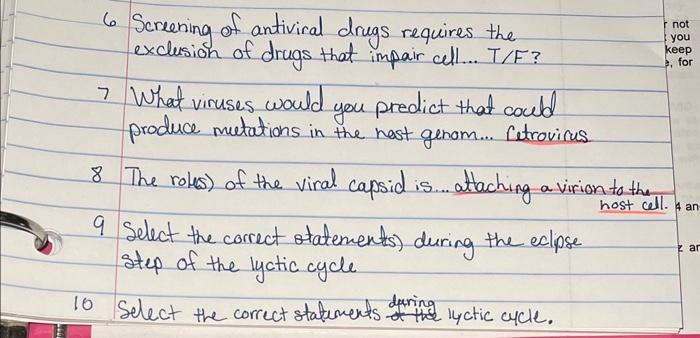 6 Screening of antiviral drugs requires the
exclusion of drugs that impair cell... T/F?
7 What viruses would you predict that could
produce mutations in the host genom... retrovirus
8 The role(s) of the viral capsid is... attaching a virion to the
host cell.
9 Select the correct statement(s) during the eclipse
step of the lyctic cycle
10 Select the correct statements during lyctic cycle.
not
you
keep
, for
4 an
z ar